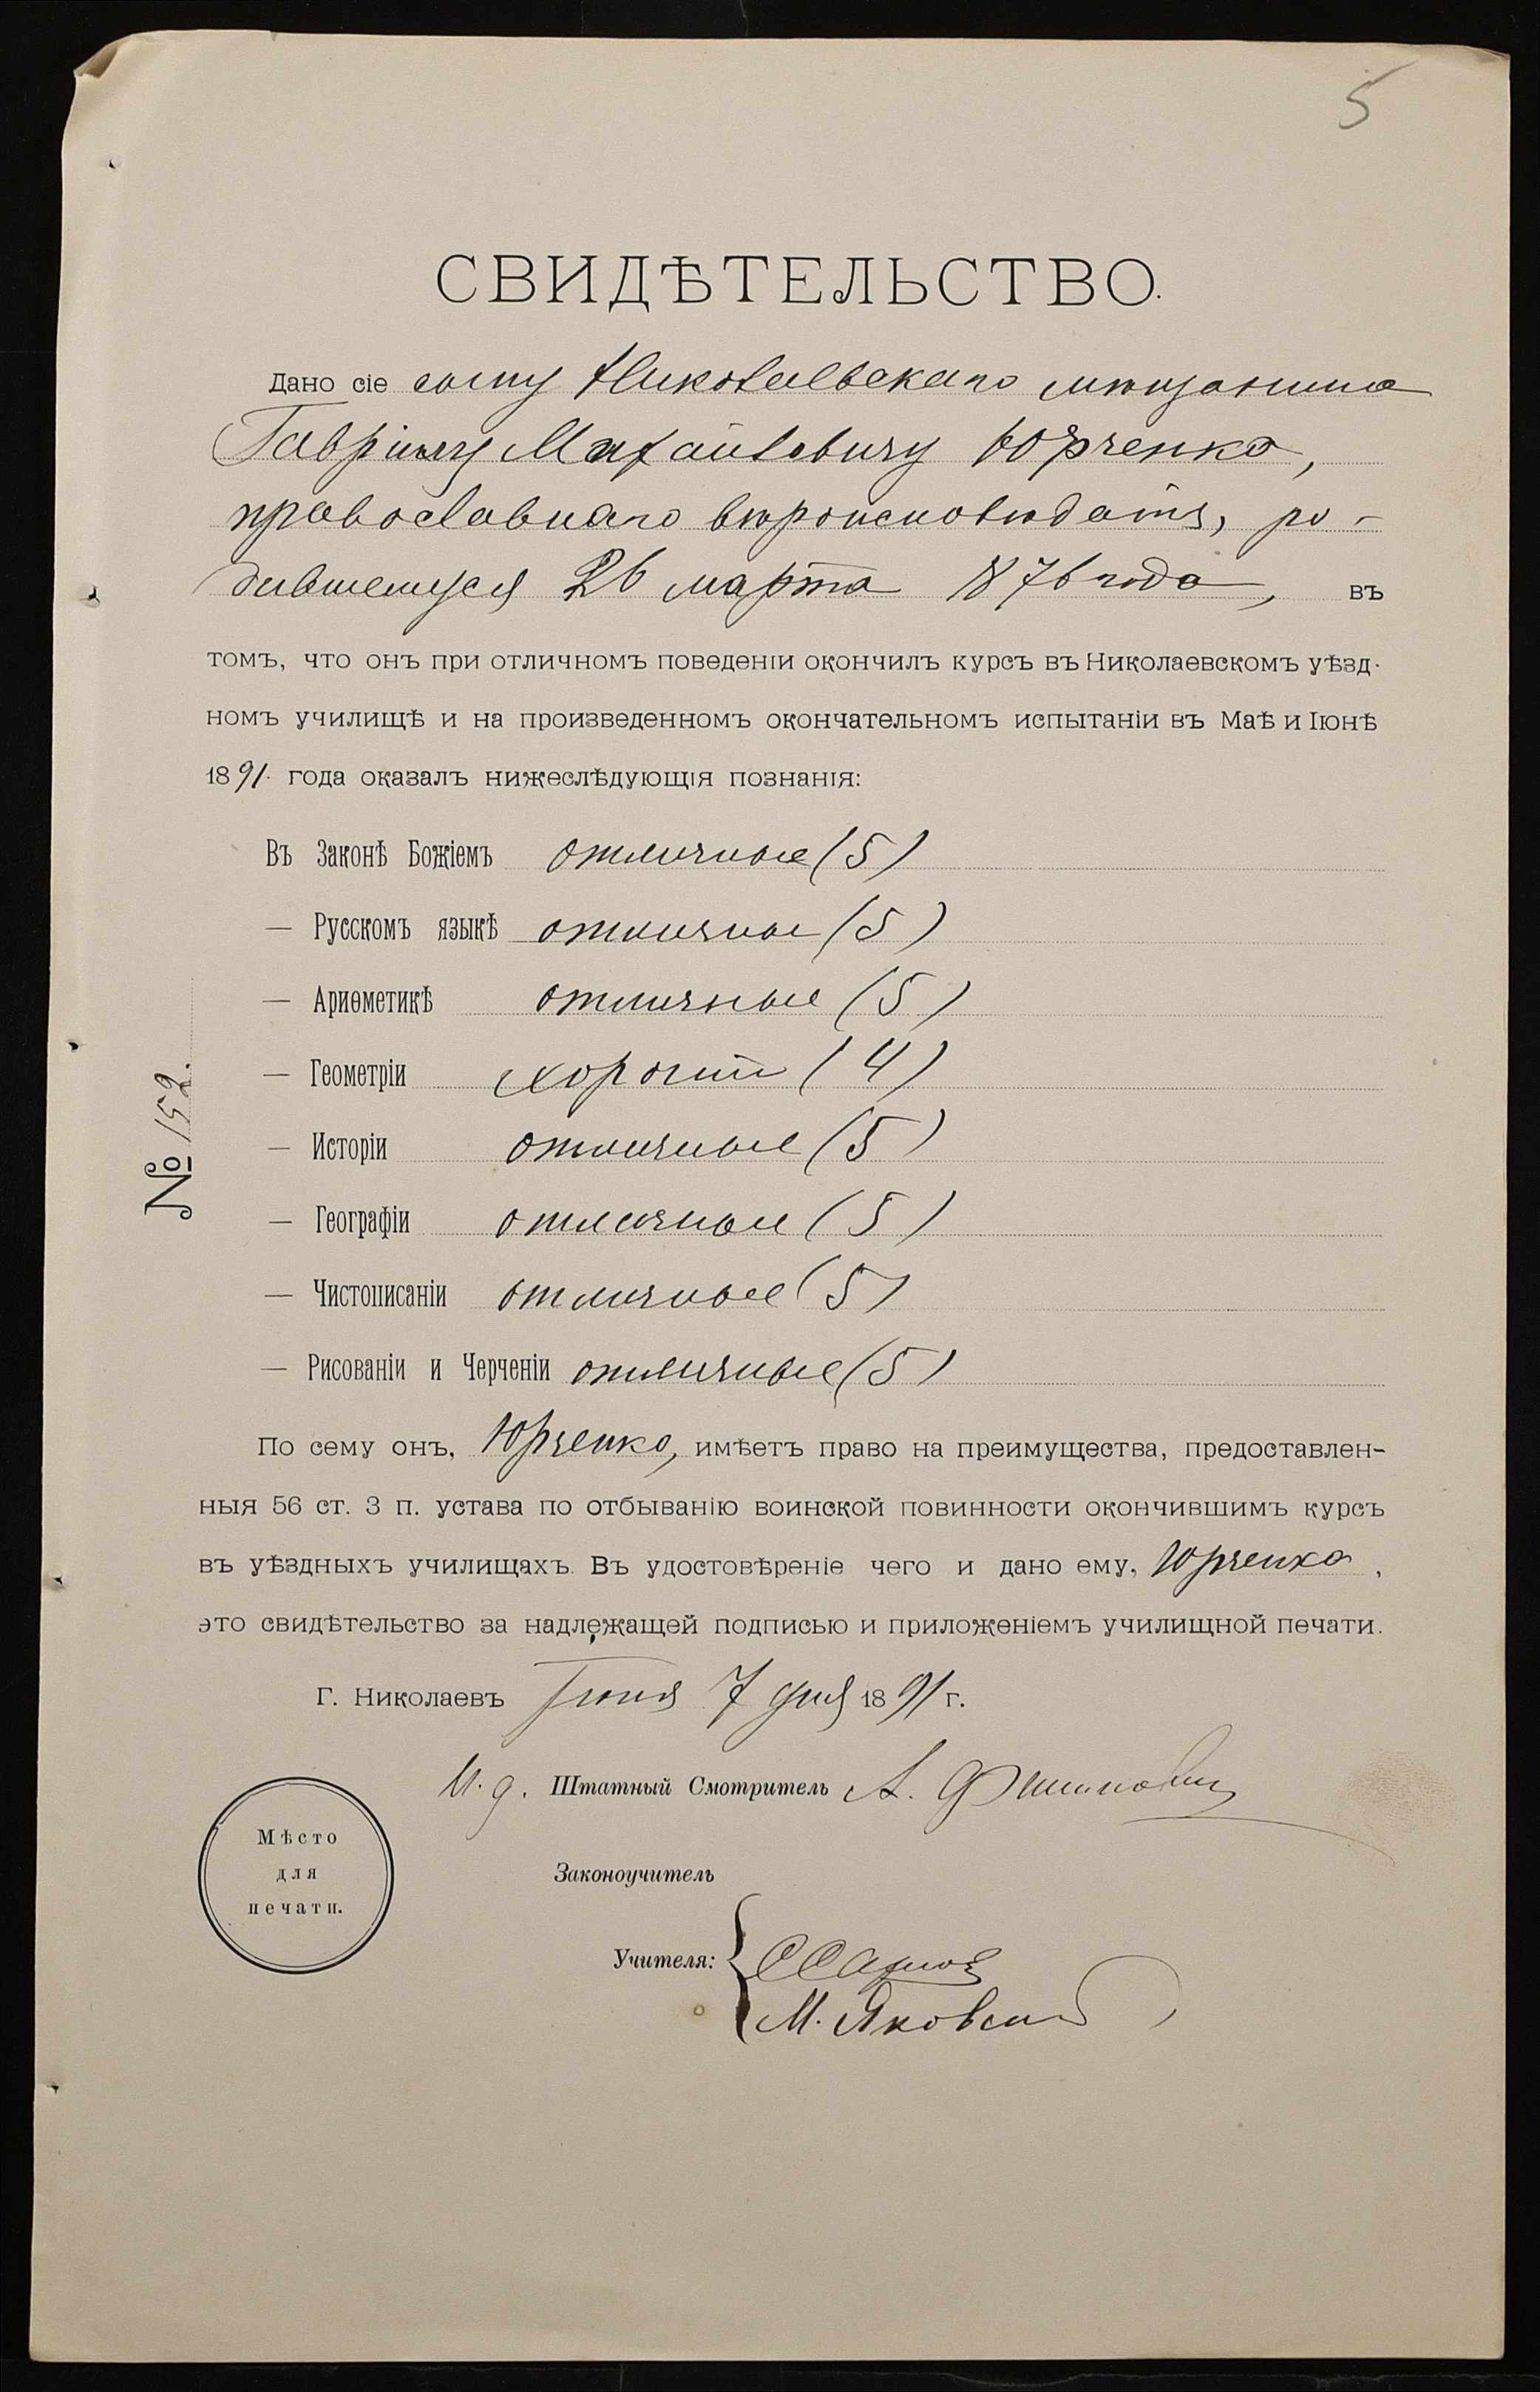 5
СВИДѢТЕЛЬСТВО.
Дано сіе сыну Николаевскаго мѣщанина
Гавріилу Михайловичу Юрченко,
православнаго вѣроисповѣданія, ро-
дившемуся 26 марта 1876 года, въ
томъ, что онъ при отличномъ поведеніи окончилъ курсъ въ Николаевскомъ уѣзд-
номъ училищѣ и на произведенномъ окончательномъ испытаніи въ Маѣ и Іюнѣ
1891. года оказалъ нижеслѣдующія познанія:
Въ Законѣ Божіемъ отличные (5)
— Русскомъ языкѣ отличные (5)
— Ариѳметикѣ отличные (5)
— Геометріи хорошія (4)
— Исторіи отличные (5)
— Географіи отличные (5)
— Чистописаніи отличные (5)
— Рисованіи и Черченіи отличные (5)
№ 152.
По сему онъ, Юрченко, имѣетъ право на преимущества, предоставлен-
ныя 56 ст. 3 п. устава по отбыванію воинской повинности окончившимъ курсъ
въ уѣздныхъ училищахъ. Въ удостовѣреніе чего и дано ему, Юрченко,
это свидѣтельство за надлежащей подписью и приложеніемъ училищной печати.
Г. Николаевъ Іюня 7 дня 1891 г.
И. д. Штатный Смотритель А.
Мѣсто
для
печати.
Законоучитель
Учителя:
М. Яковскій